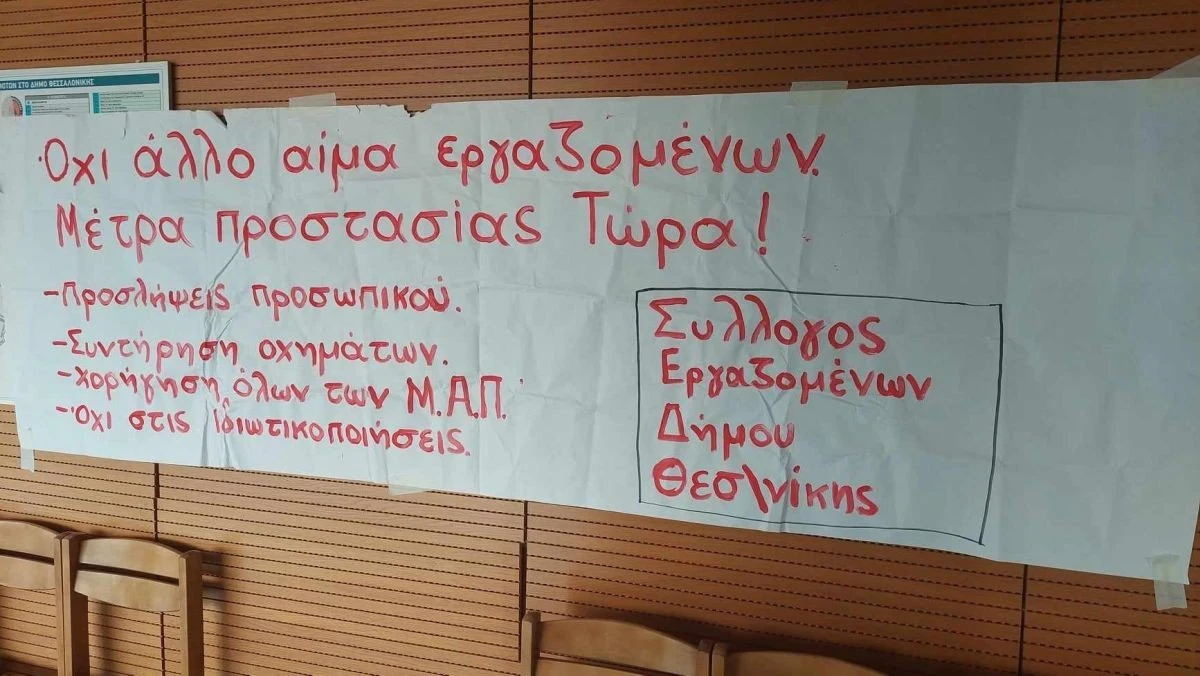 ΟΤΩΝ ΣΤΟ ΔΗΜΟ ΘΕΣΣΑΛΟΝΙΚΗΣ
Όχι άλλο αίμα εργαζομένων.
Μέτρα προστασίας Τώρα!
-Προσλήψεις προσωπικού.
-Συντήρηση οχημάτων.
-χορήγηση όλων των Μ.Α.Π.
-Όχι στις ιδιωτικοποιήσεις.
Συλλογος
Εργαζομένων
Δήμου
Θεσ\νίκης